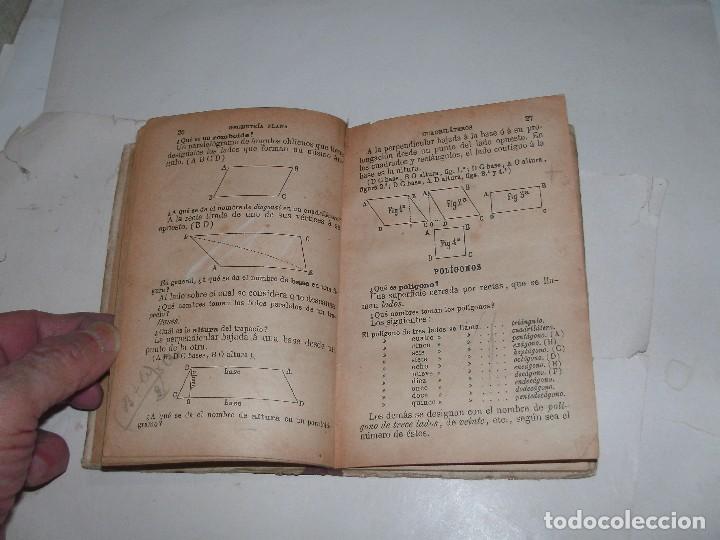 26 GEOMETRÍA PLANA
¿Qué es un romboide?
Un paralelógramo de ángulos oblicuos que tiene
desiguales los lados que forman un mismo án-
gulo. (A B C D)
A B
D C
¿A qué se da el nombre de diagonal en un
A la recta tirada de uno de sus vértices á su
opuesto. (B D)
C
En general, ¿á qué se da el nombre de base en una fi-
gura?
Al lado sobre el cual se considera que descansa.
¿Qué nombres toman los lados paralelos de un tra-
pecio?
Bases.
¿Cuál es la altura del trapecio?
La perpendicular bajada á una base desde un
punto de la otra.
(A B, D G bases, B O altura),
B base A
altura
C O base D
¿A qué se da el nombre de altura en un paraleló-
gramo?
CUADRILÁTEROS 27
A la perpendicular bajada á la base ó á su pro-
longación desde un punto del lado opuesto. En
los cuadrados y rectángulos, el lado contiguo á la
base es la altura.
(D G base, B O altura, fig. 1.ª; D G base, A O altura,
figura 2.ª, D G base, A D altura, figs. 3.ª y 4.ª)
A B A B A B
Fig 1ª Fig 2ª Fig 3ª
D C D C
A B
Fig. 4ª
POLÍGONOS
¿Qué es polígono?
Una superficie cerrada por rectas, que se lla-
man lados.
¿Qué nombres toman los polígonos?
Los siguientes:
El polígono de tres lados se llama. . . . triángulo.
» cuatro » » . . . cuadrilátero.
» cinco » » . . . pentágono. (A)
» seis » » . . . exágono. (B)
» siete » » . . . eptágono. (C)
» ocho » » . . . octágono. (D)
» nueve » » . . . eneágono. (E)
» diez » » . . . decágono. (F)
» once » » . . . endecágono.
» doce » » . . . dodecágono.
» quince » » . . . pentedecágono.
Los demás se designan con el nombre de polí-
gono de trece lados, de veinte, etc., según sea el
número de éstos.
todocoleccion.net